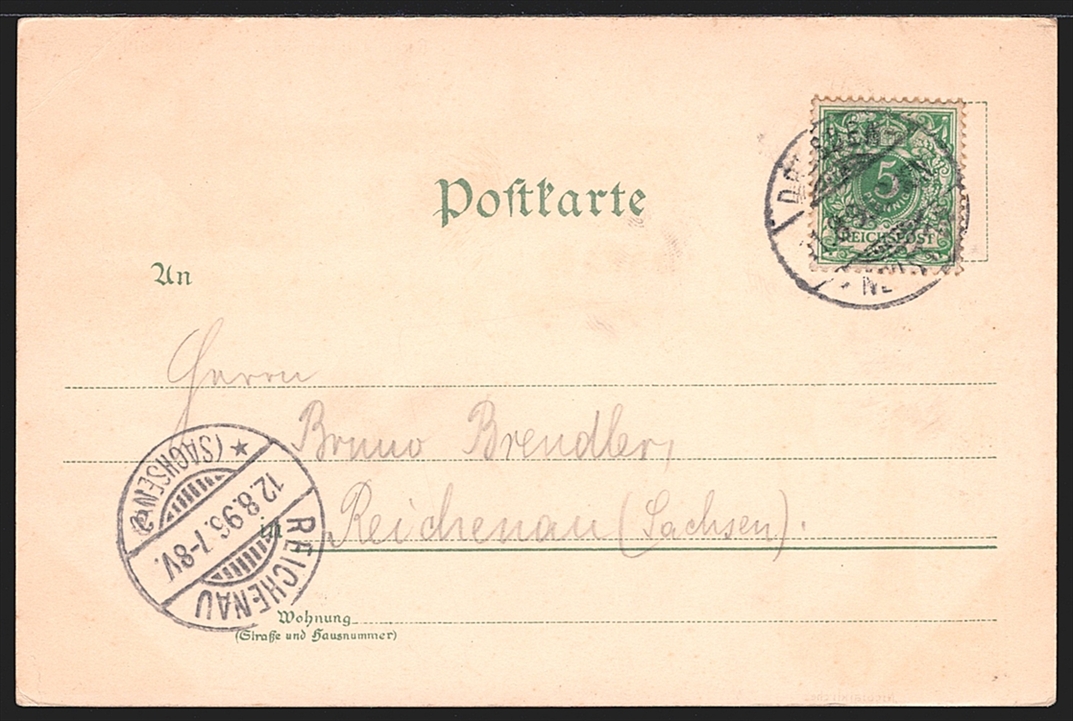 Postkarte
5
PFENNIG
REICHSPOST
An
Herrn
Bruno Brendler,
in Reichenau (Sachsen).
REICHENAU
(SACHSEN)
12.8.96.7-8V.
Wohnung
(Straße und Hausnummer)